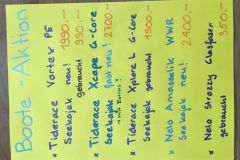 Boote - Aktion
* Tiderace Vortex PE 1990.-
Seekajak neu! 990.-
* Tiderace Xcape G-Core
Seekajak fast neu! 2700.-
+ mit Extras!
* Tiderace Xplore L G-Core
Seekajak gebraucht 1900.-
* Nelo Amassalik WWR
Seekajak neu! 2400.-
* Nelo Strozzy Glasfaser
gebraucht 350.-